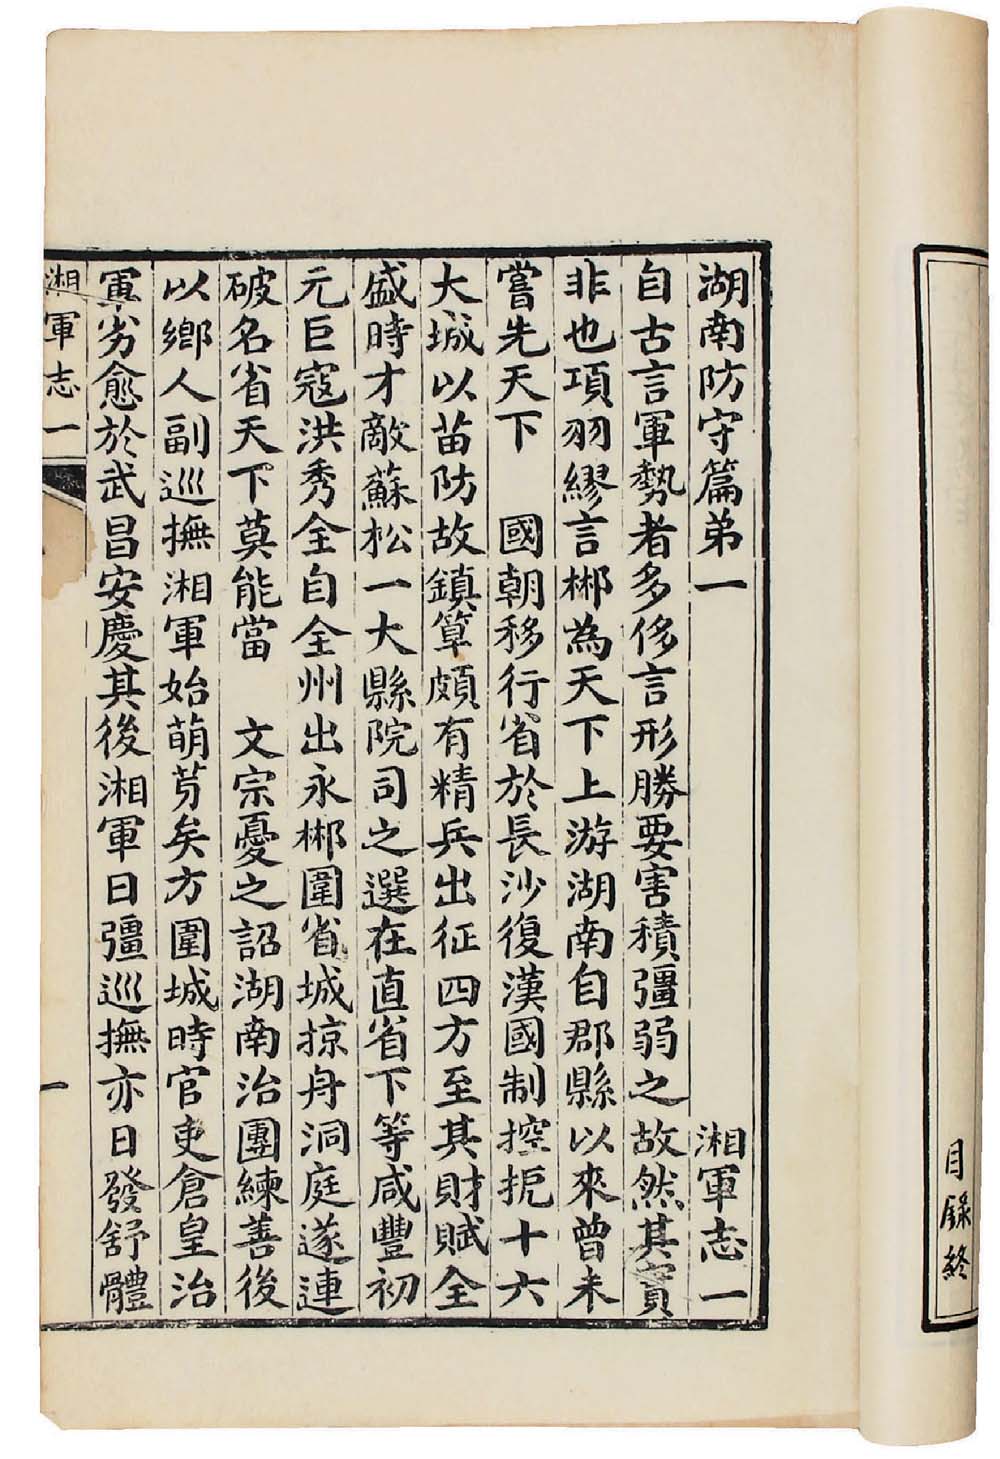 目錄終
湖南防守篇弟一　湘軍志一
自古言軍勢者多侈言形勝要害積彊弱之故然其實
非也項羽繆言郴為天下上游湖南自郡縣以來曾未
嘗先天下　國朝移行省於長沙復漢國制控扼十六
大城以苗防故鎮筸頗有精兵出征四方至其財賦全
盛時才敵蘇松一大縣院司之選在直省下等咸豐初
元巨寇洪秀全自全州出永郴圍省城掠舟洞庭遂連
破名省天下莫能當　文宗憂之詔湖南治團練善後
以鄉人副巡撫湘軍始萌芽矣方圍城時官吏倉皇治
軍劣愈於武昌安慶其後湘軍日彊巡撫亦日發舒體
湘軍志一
一